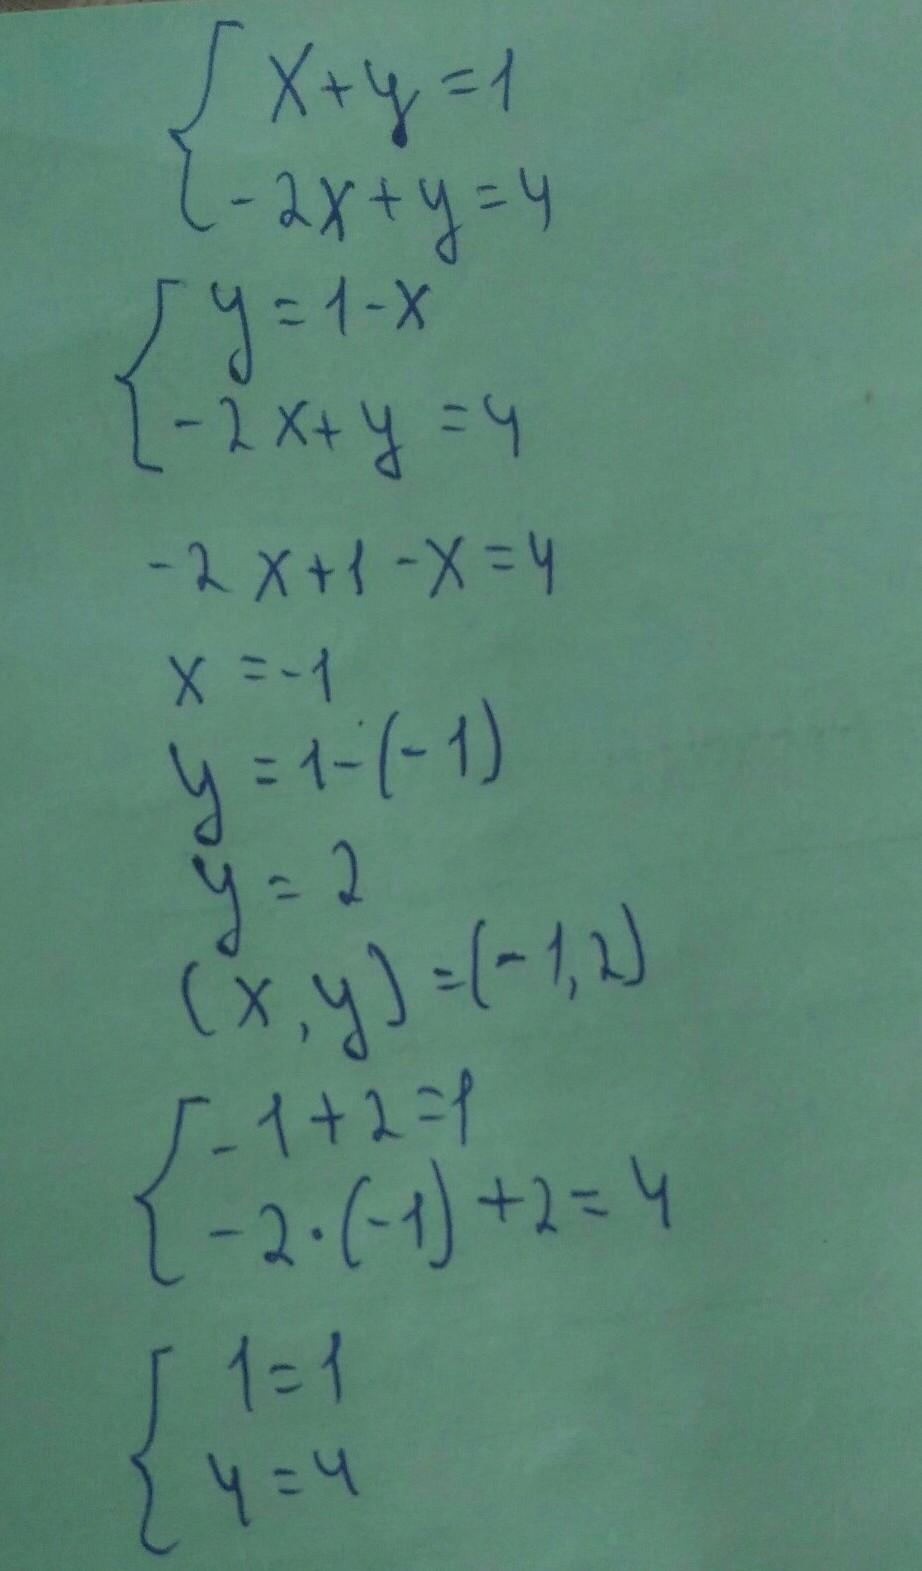 x+y=1
-2x+y=4
y=1-x
-2x+y=4
-2x+1-x=4
x=-1
y=1-(-1)
y=2
(x,y)=(-1,2)
-1+2=1
-2·(-1)+2=4
1=1
4=4